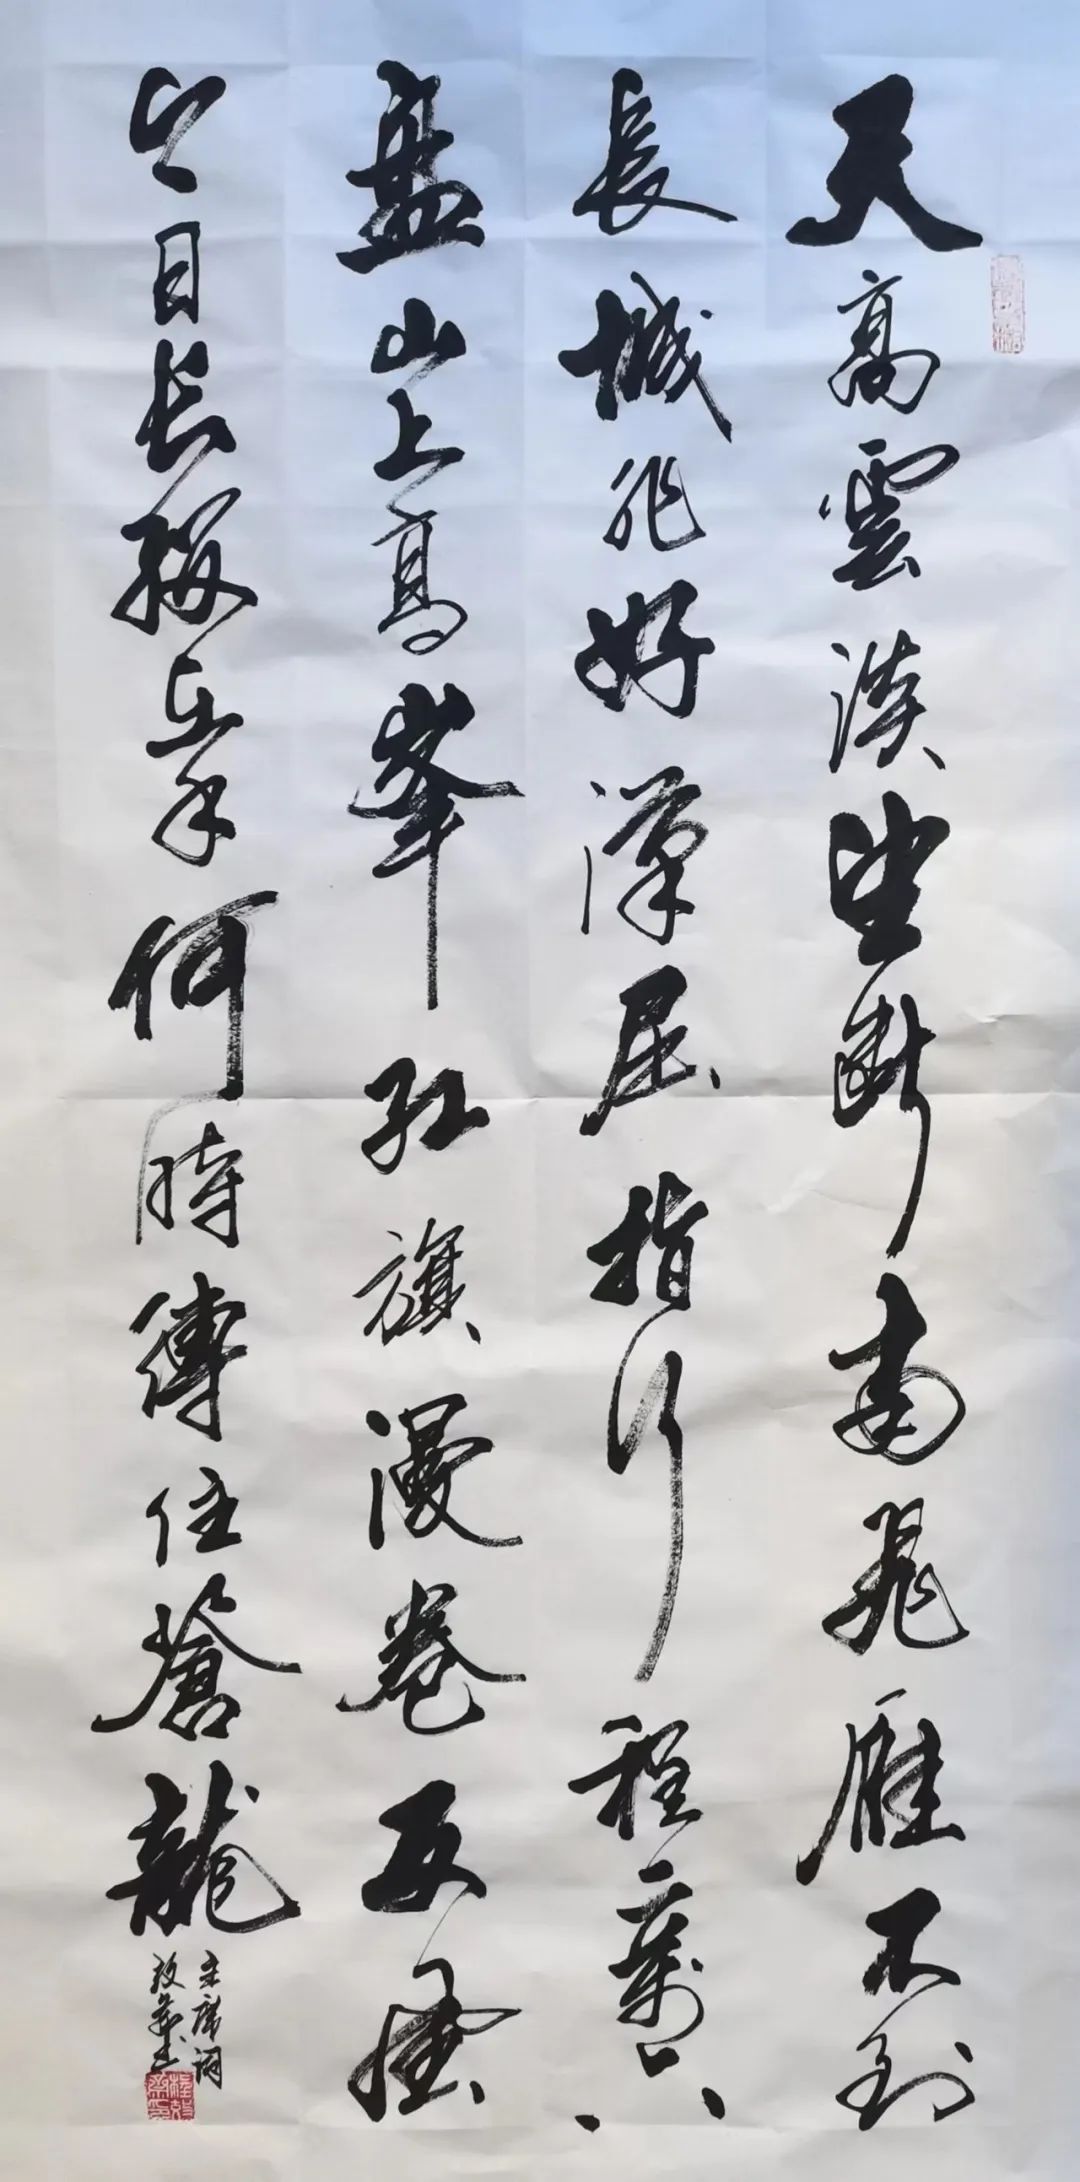 天高雲淡望斷南飛雁不到
長城非好漢屈指行程二萬六
盤山上高峯红旗漫卷西風
今日长缨在手何時縛住蒼龍
主席词